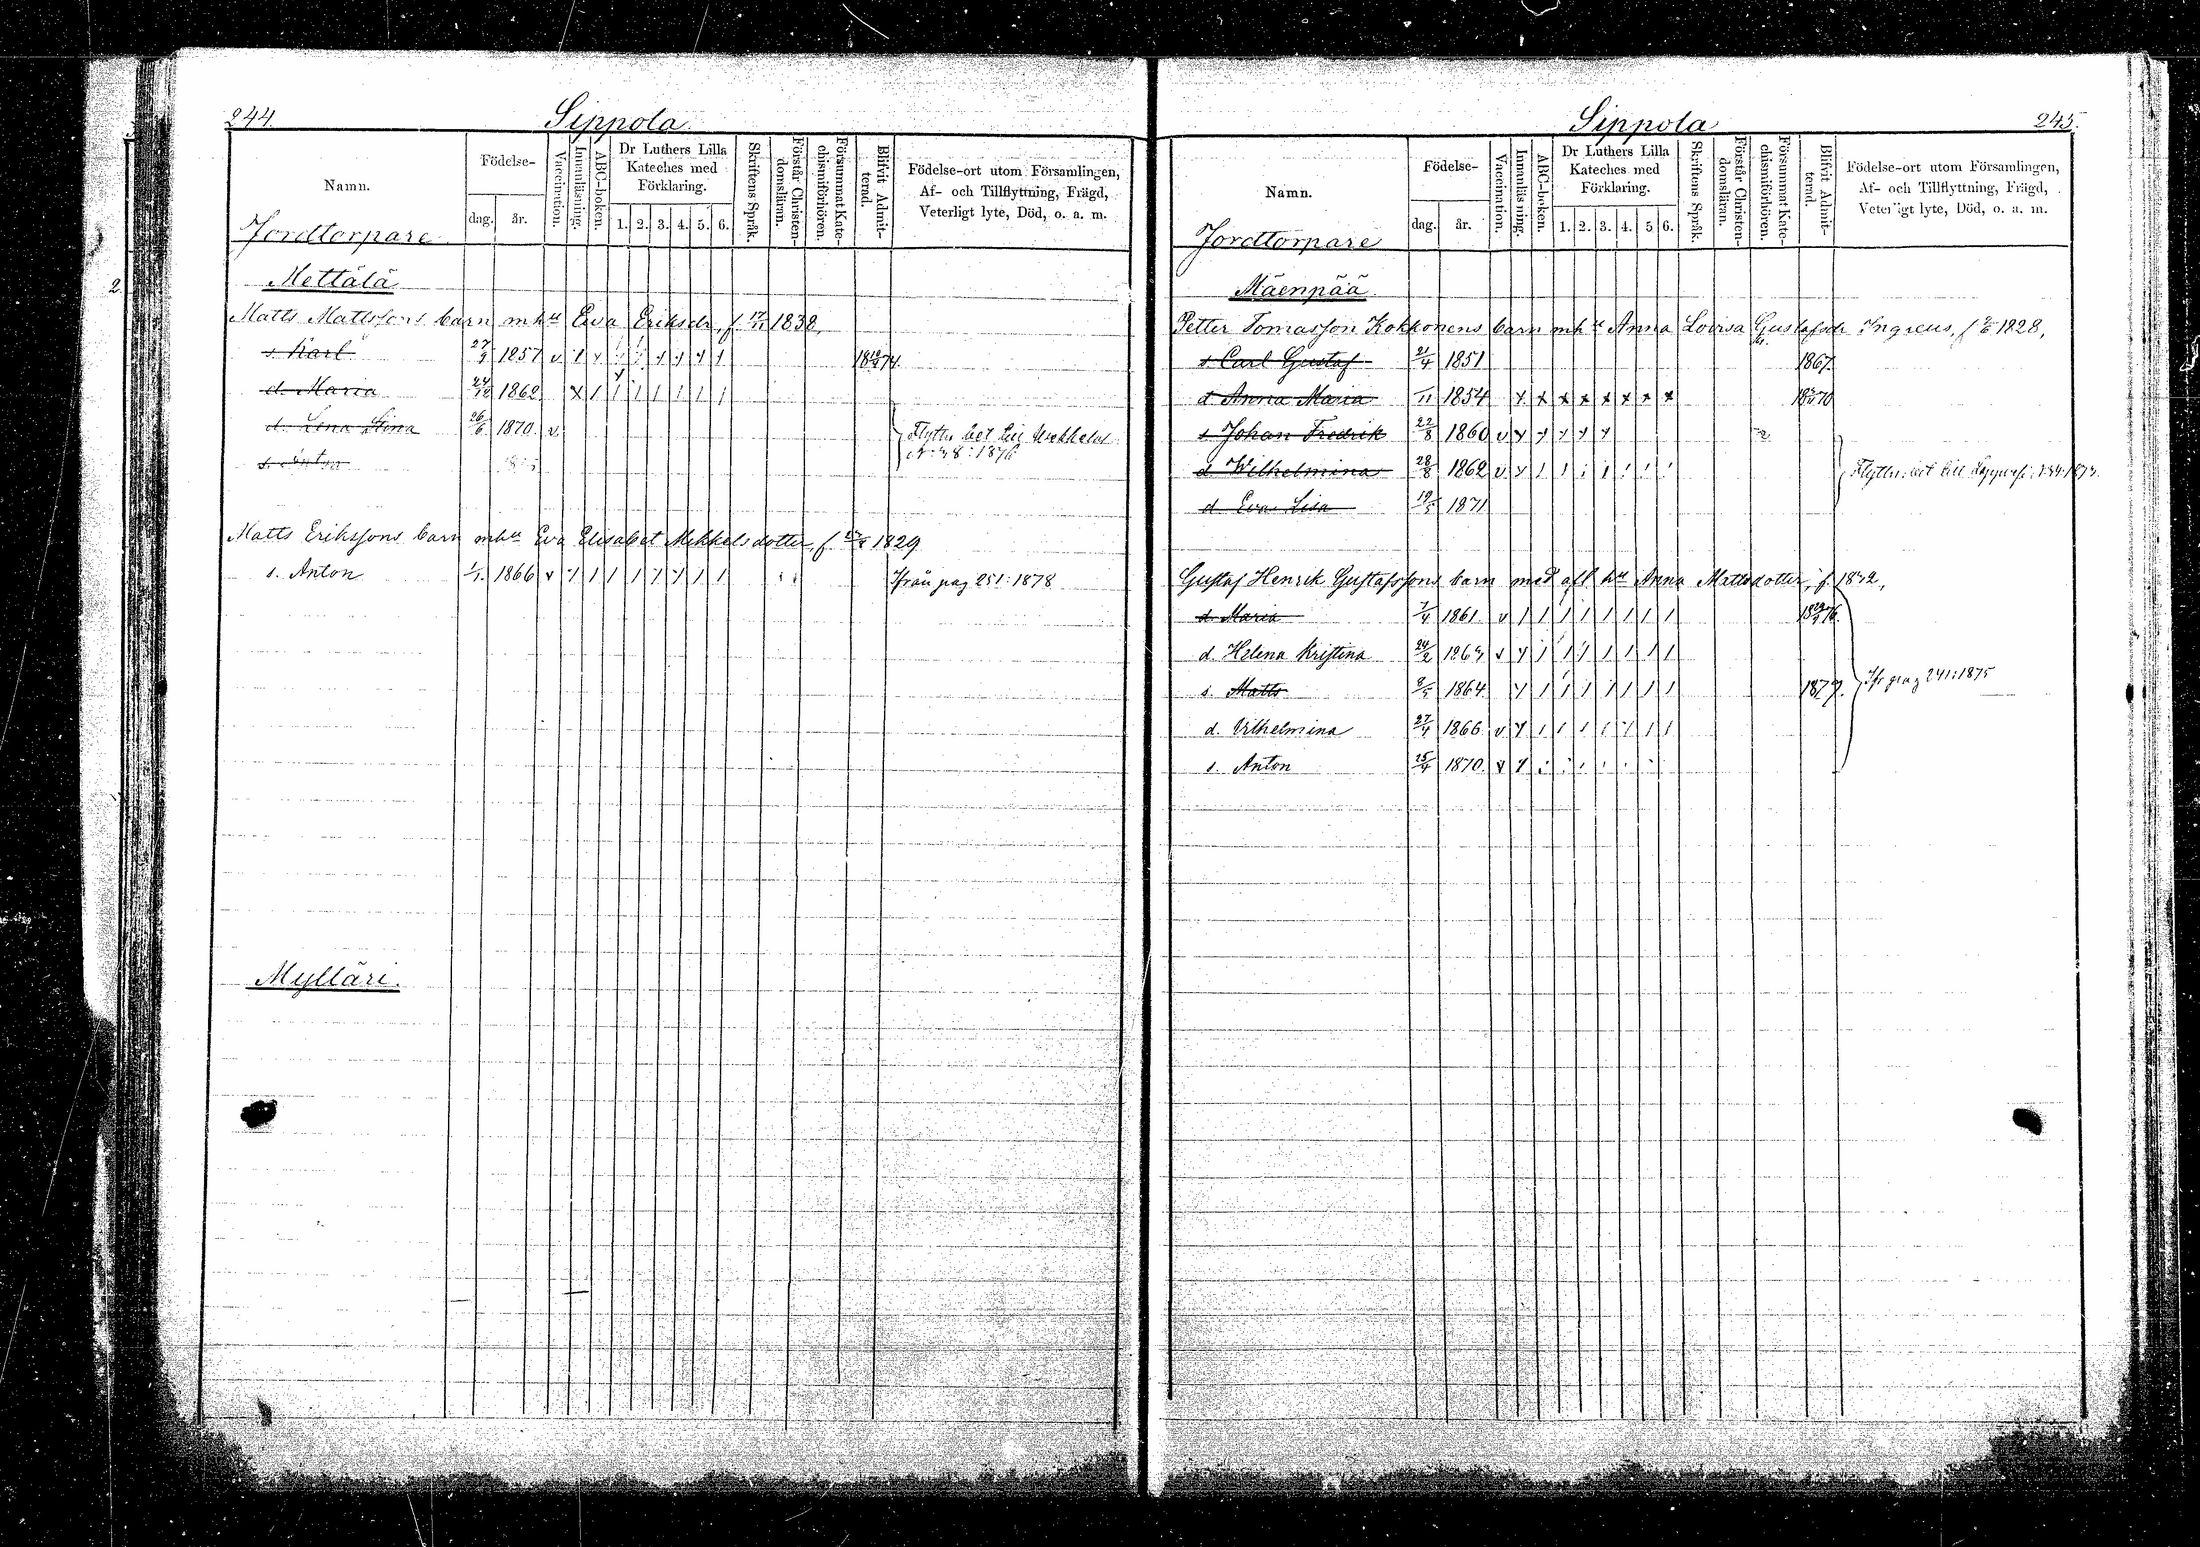 244. Sippola
Namn. Födelse- dag. år. Vaccination. Innanläsning. ABC-boken. Dr Luthers Lilla Kateches med Förklaring. 1. 2. 3. 4. 5. 6. Skriftens Språk. Förstår Christendomsläran. Försummat Katechismiförhören. Blifvit Admitterad. Födelse-ort utom Församlingen, Af- och Tillflyttning, Frägd, Veterligt lyte, Död, o. a. m.
Jordtorpare
Mettälä
Matts Mattssons barn mhu Eva Eriksdr, f. 17/11 1838,
s. Karl 27/9 1857 v 18 74
d. Maria 24/12 1862
d. Lena Stina 26/6 1870 v
s. Anton
Flyttn. bet. till
1876
Matts Erikssons barn mhu Eva Elisabet Mikkelsdotter, f. 1829
s. Anton 1/1 1866 v Ifrån pag 251: 1878
Mylläri.
Sippola 245.
Namn. Födelse- dag. år. Vaccination. Innanläsning. ABC-boken. Dr Luthers Lilla Kateches med Förklaring. 1. 2. 3. 4. 5 6. Skriftens Språk. Förstår Christendomsläran. Försummat Katechismiförhören. Blifvit Admitterad. Födelse-ort utom Församlingen, Af- och Tillflyttning, Frägd, Veterligt lyte, Död, o. a. m.
Jordtorpare
Mäenpää
Petter Tomasson Kokkonens barn mhu Anna Lovisa Gustafsdr Ingreus, f. 1828,
s. Carl Gustaf 21/4 1851 1867.
d. Anna Maria /11 1854 18 70
s. Johan Fredrik 22/8 1860 v
d. Wilhelmina 28/8 1862 v
d. Eva Lisa 19/5 1871
Flyttn. bet. till
Gustaf Henrik Gustafssons barn med afl. hu Anna Mattsdotter, f. 1832,
d. Maria 7/4 1861 v 18 76.
d. Helena Kristina 24/2 v
s. Matts 8/5 1864 1877.
d. Vilhelmina 27/4 1866 v
s. Anton 25/4 1870 v
Ifr pag 241: 1875